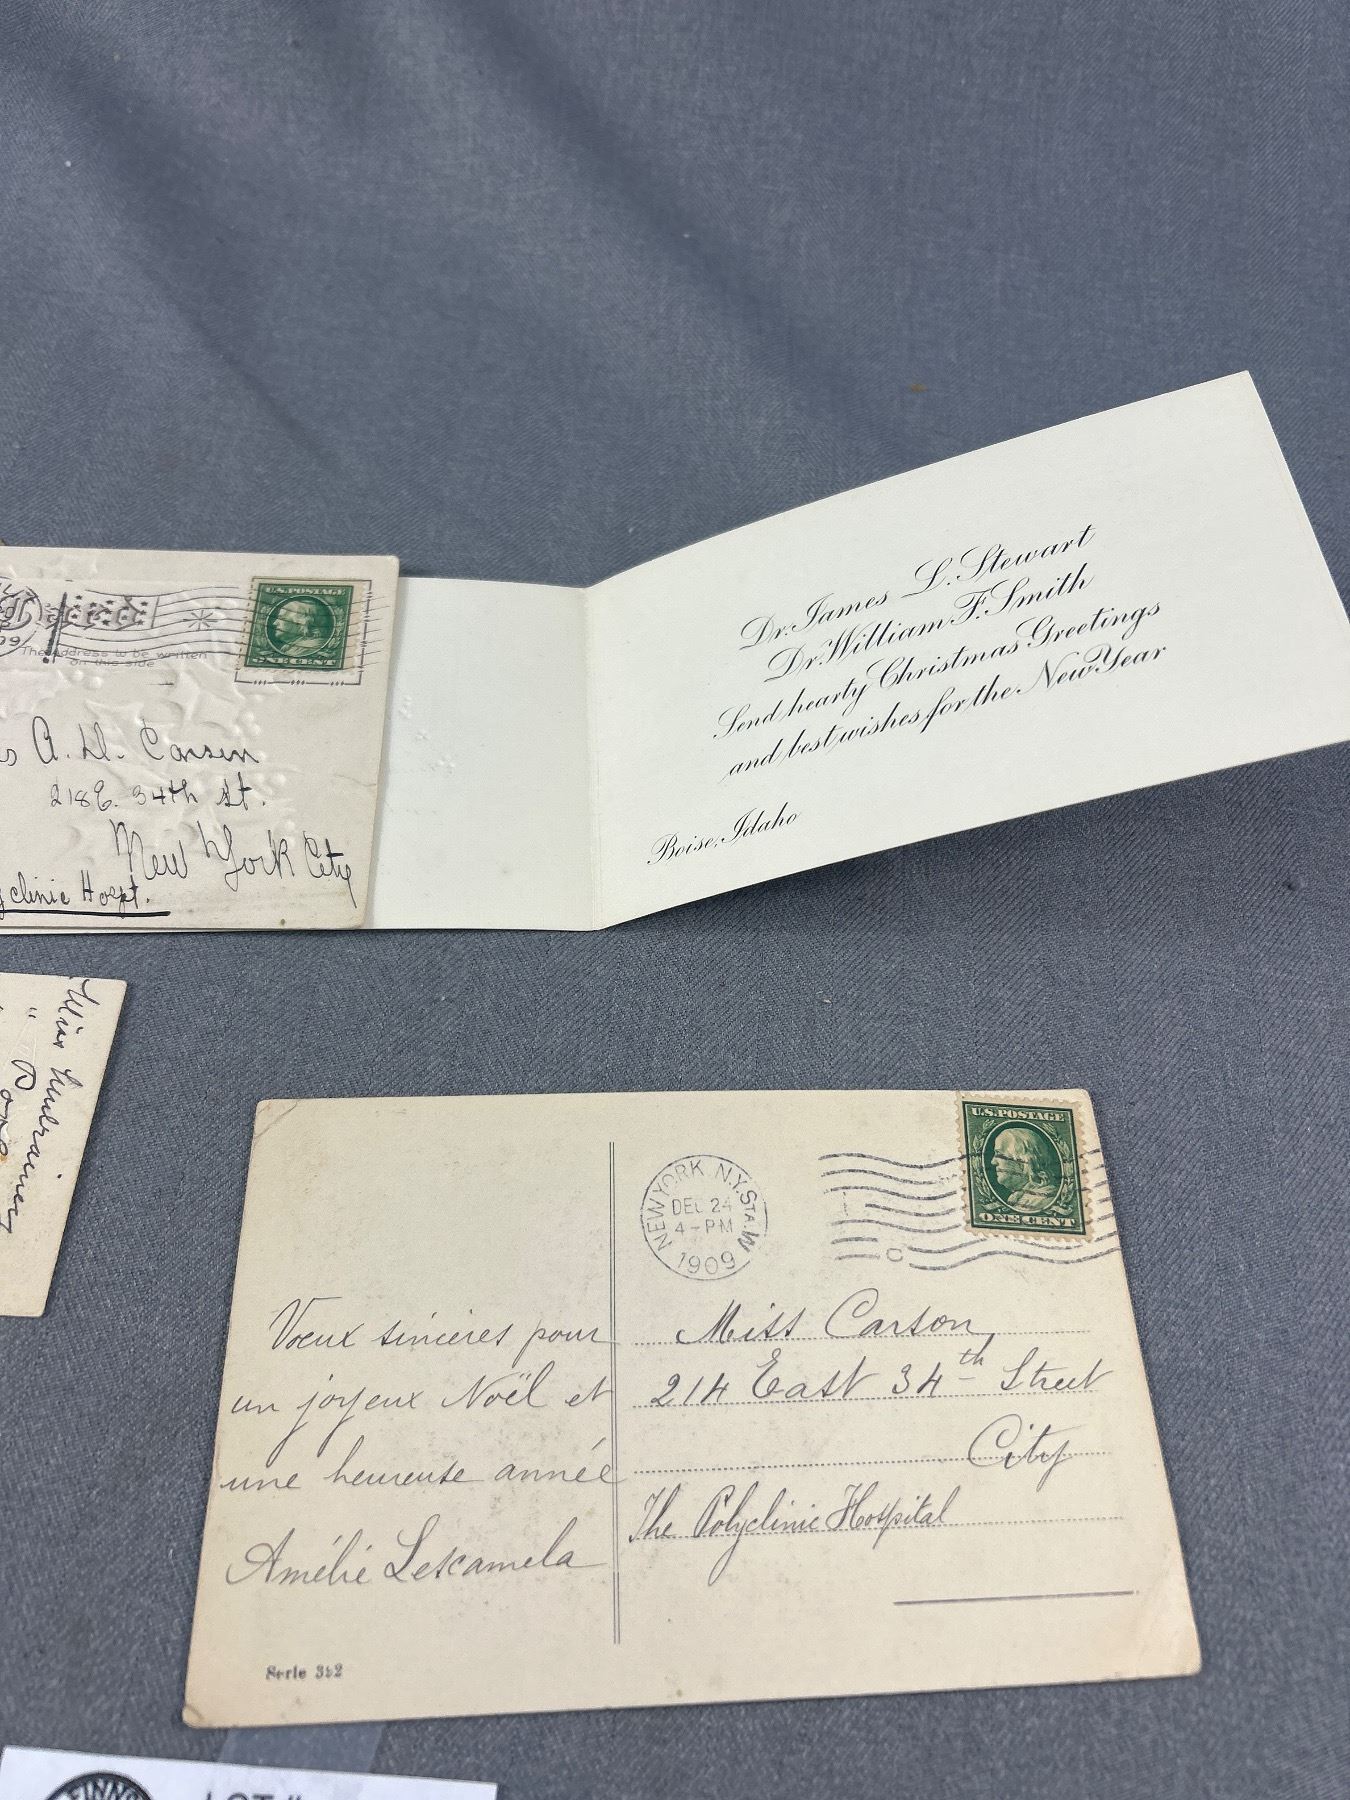 U.S. POSTAGE
ONE CENT
The Address to be written
on this side
A. D. Carson
218 E. 34th St.
New York City
clinic Hospt.
Dr. James L. Stewart
Dr. William F. Smith
Send hearty Christmas Greetings
and best wishes for the New Year
Boise, Idaho
Miss
U.S. POSTAGE
ONE CENT
NEW YORK, N.Y. STA. W
DEC 24
4 - PM
1909
Vœux sincères pour
un joyeux Noël et
une heureuse année
Amélie Lescamela
Miss Carson,
214 East 34th Street
City
The Polyclinic Hospital
Serie 352
LOT #